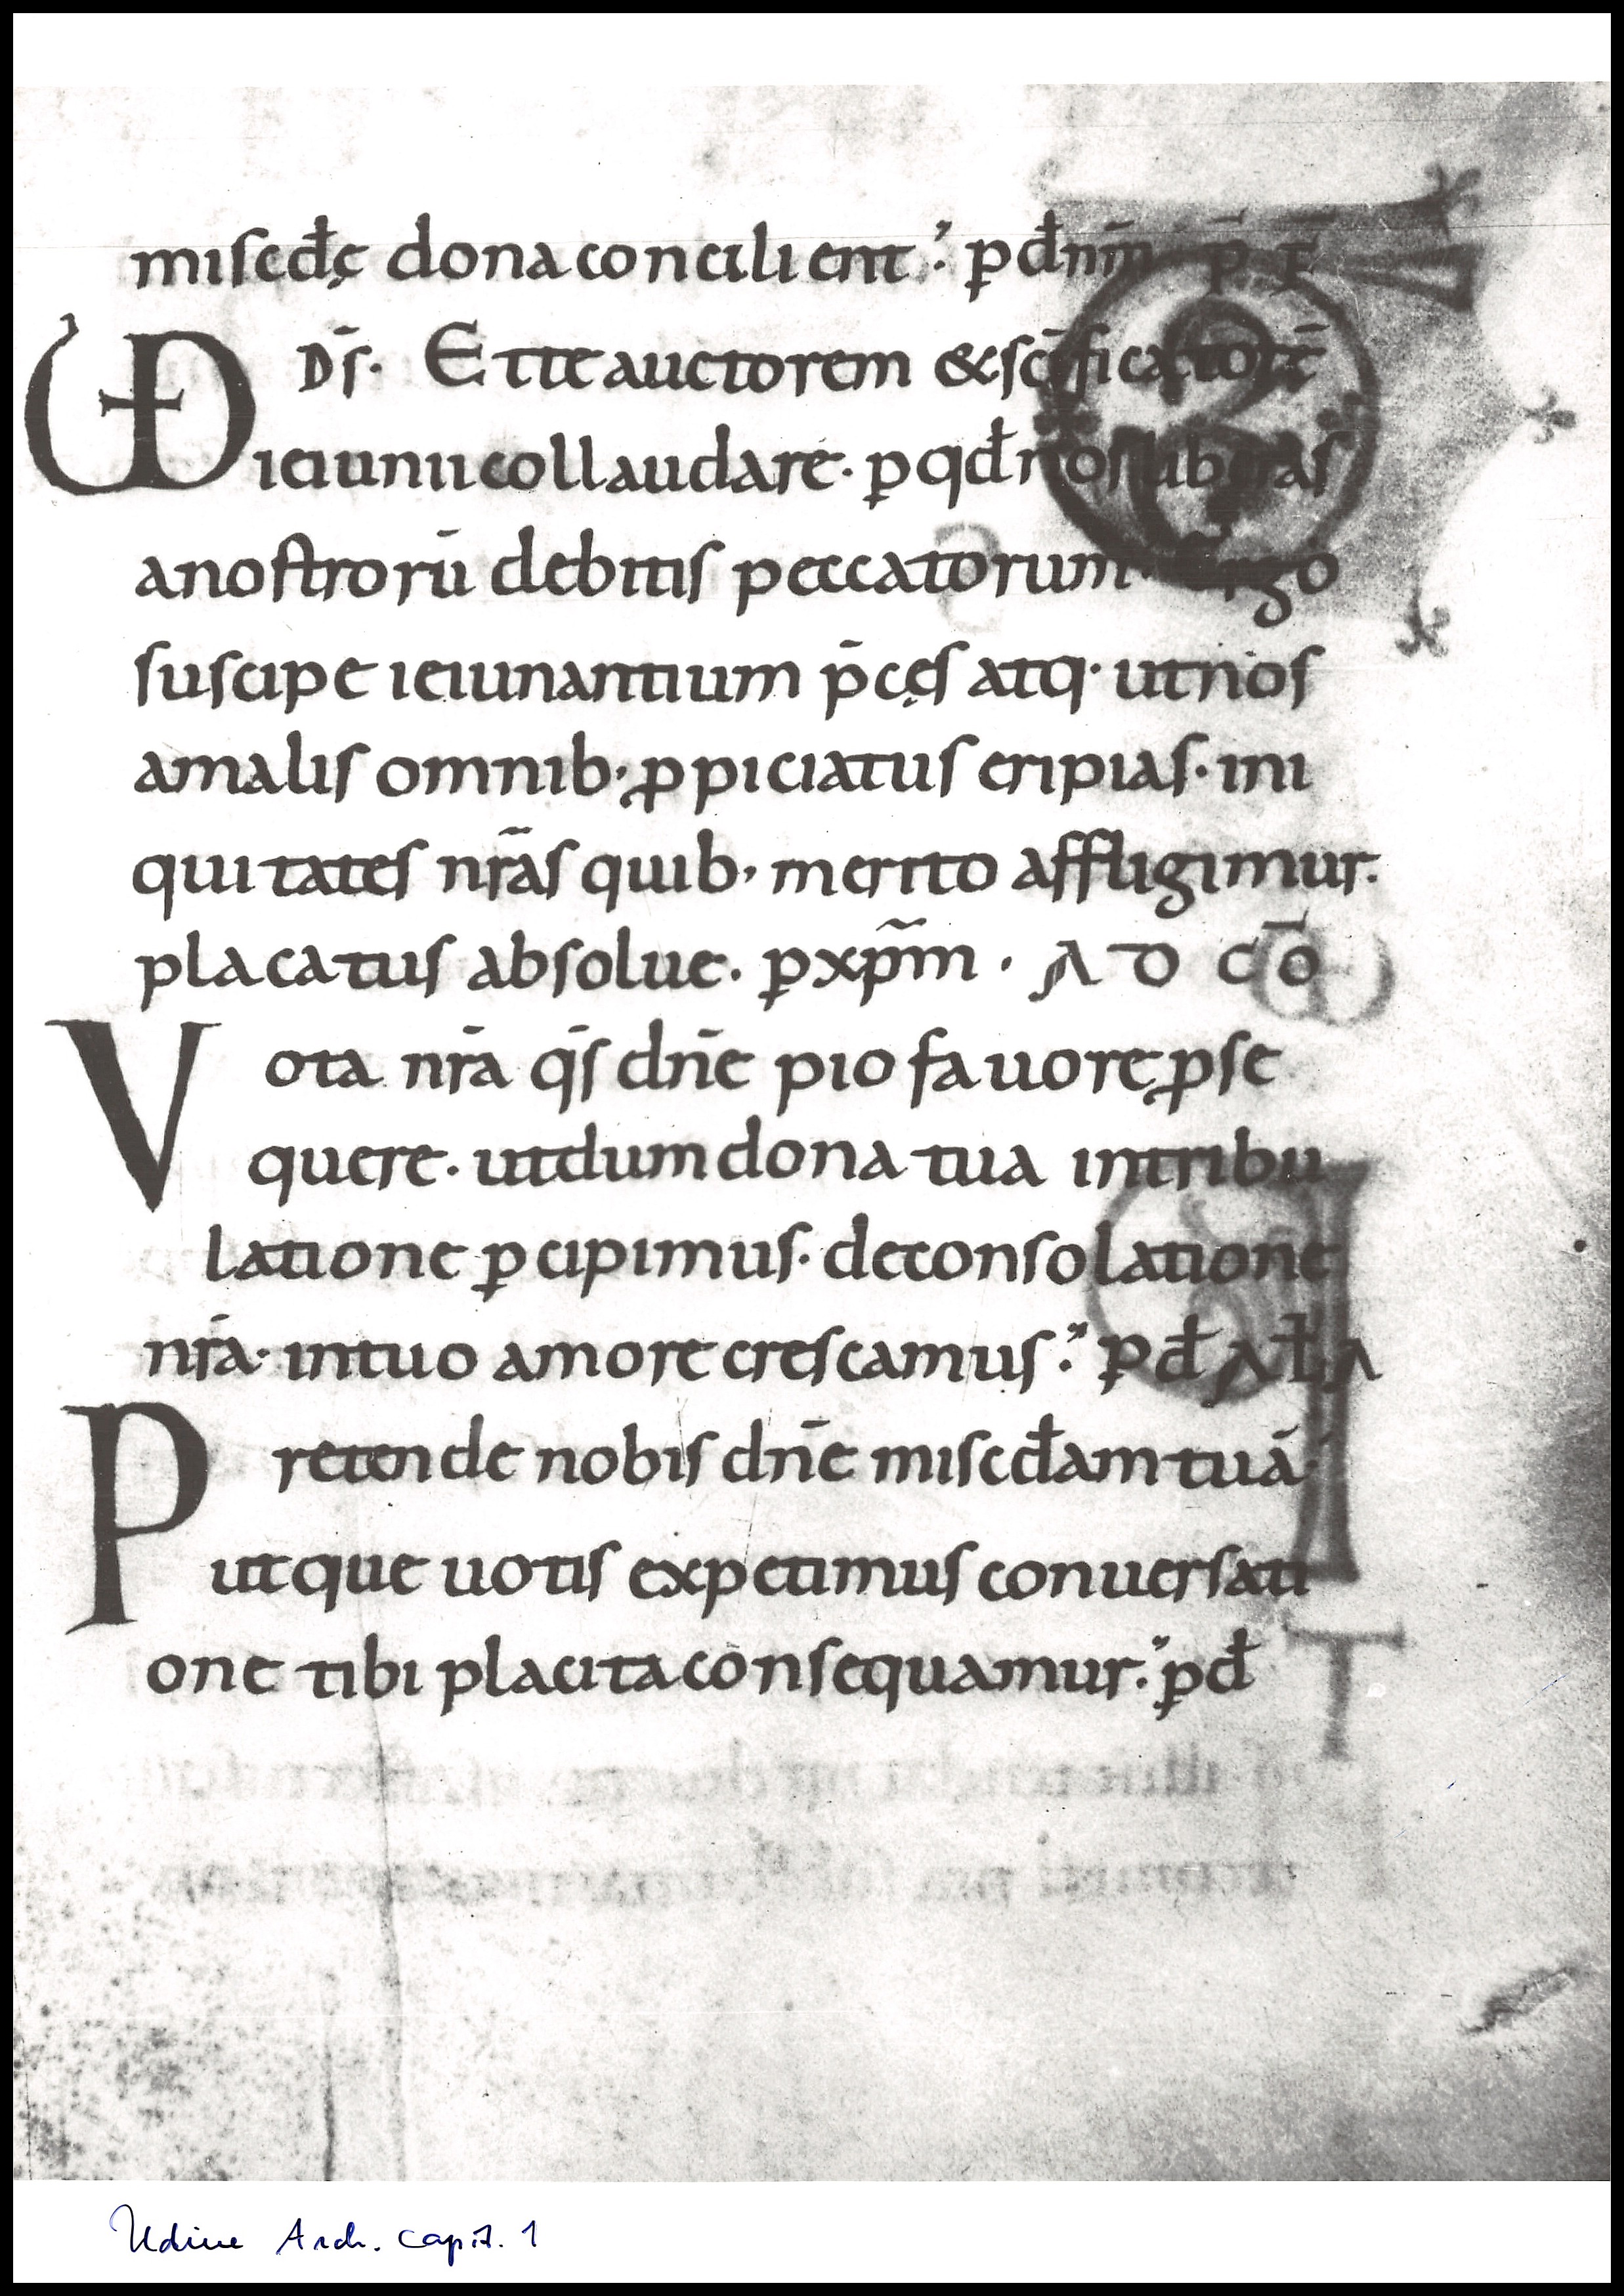 misc̄dę dona concilient·' ꝑ dn̄m p̄ ꝼ̄
VD D̄s· Et te auctorem & sc̄ificatorē
ieiunii collaudare· ꝑ qđ nos liberas
a nostrorū debitis peccatorum· Ergo
suscipe ieiunantium p̄cęs atq· ut nos
a malis omnib; ꝓpiciatus eripias· ini
quitates nr̄as quib; merito affligimur·
placatus absolue· ꝑ xp̄m · AD CŌ
Vota nr̄a qs̄ dn̄e pio fauore ꝓse
quere· ut dum dona tua in tribu
latione ꝑcipimus· de consolatione
nr̄a· in tuo amore crescamus·' ꝑ đ AŁA
Pretende nobis dn̄e misc̄đam tuā·
ut que uotis expetimus conuersati
one tibi placita consequamur·' ꝑ đ
Udine Arch. capit. 1